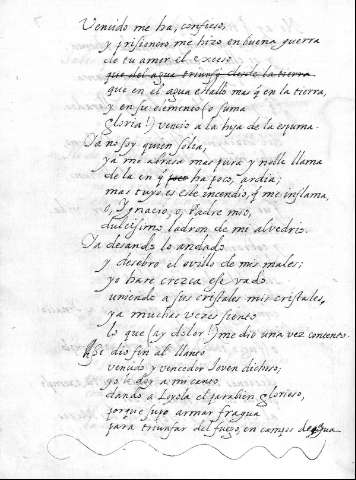 Vencido me ha, confieso,
y prisionero me hizo en buena guerra
de tu amor el exceso
que del agua triunfa desde la tierra
que en el agua estallo mas q̃ en la tierra,
y en su elemento (o suma
gloria!) vencio a la hija de la espuma.
Ya no soy quien solia,
ya me abrasa mas pura y noble llama
de la en q̃ poco ha poco, ardia;
mas tuyo es este incendio, q̃ me inflama,
o, Ignacio, o, Padre mio,
dulcissimo ladron de mi alvedrio.
Ya desando lo andado
y devano el ovillo de mis males;
yo hare crezca ese vado
uniendo a sus cristales mis cristales,
ya muchas veces siento
lo que (ay dolor!) me dio una vez contento.
Se dio fin al llanto
vencido y vencedor Joven dichoso;
yo le doy a mi canto,
dando a Loyola el parabien glorioso,
porque supo armar fragua
para triunfar del fuego, en campos de agua